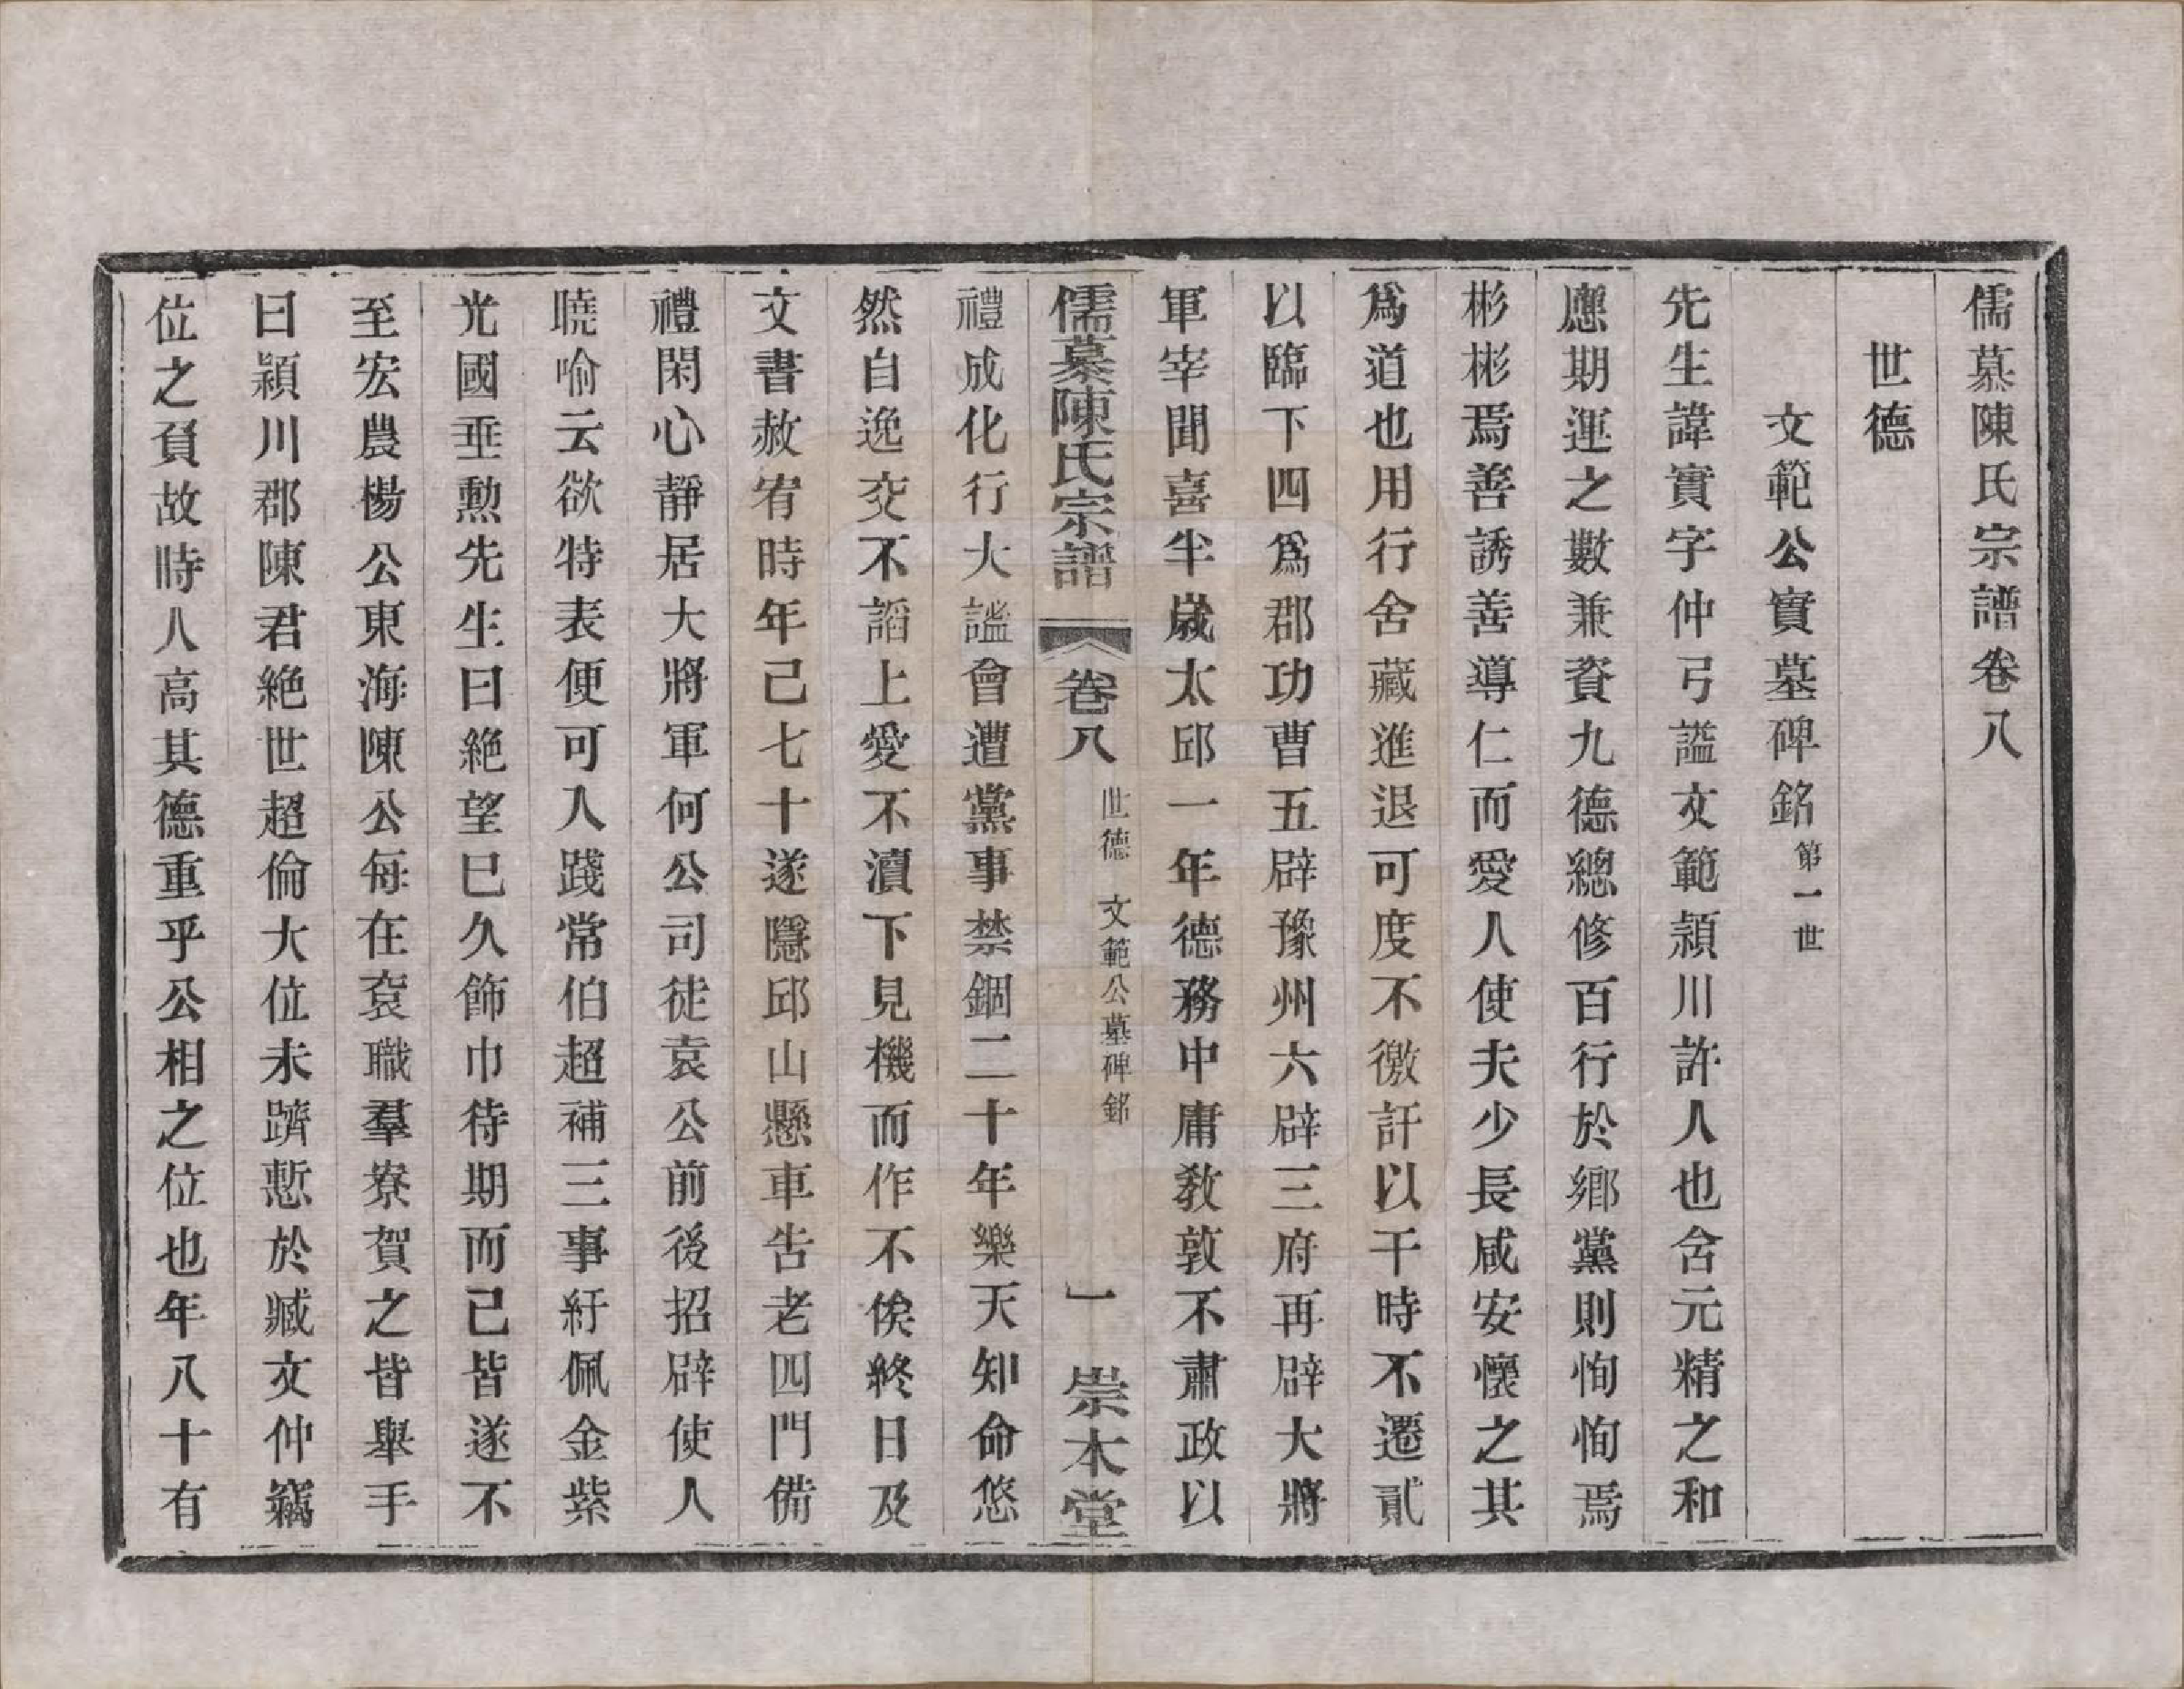 儒慕陳氏宗譜卷八
世德
文範公實墓碑銘第一世
先生諱實字仲弓謚文範潁川許人也含元精之和
應期運之數兼資九德總修百行於鄉黨則恂恂焉
彬彬焉善誘善導仁而愛人使夫少長咸安懷之其
爲道也用行舍藏進退可度不徼訐以干時不遷貳
以臨下四爲郡功曹五辟豫州六辟三府再辟大將
軍宰聞喜半歲太邱一年德務中庸敎敦不肅政以
儒慕陳氏宗譜 卷八 世德 文範公墓碑銘 一 崇本堂
禮成化行大謐會遭黨事禁錮二十年樂天知命悠
然自逸交不謟上愛不瀆下見機而作不俟終日及
文書赦宥時年己七十遂隱邱山懸車告老四門備
禮閑心靜居大將軍何公司徒袁公前後招辟使人
曉喻云欲特表便可入踐常伯超補三事紆佩金紫
光國垂勲先生曰絶望巳久飾巾待期而己皆遂不
至宏農楊公東海陳公每在袞職羣寮賀之皆舉手
曰潁川郡陳君絶世超倫大位未躋慙於臧文仲竊
位之負故時人高其德重乎公相之位也年八十有